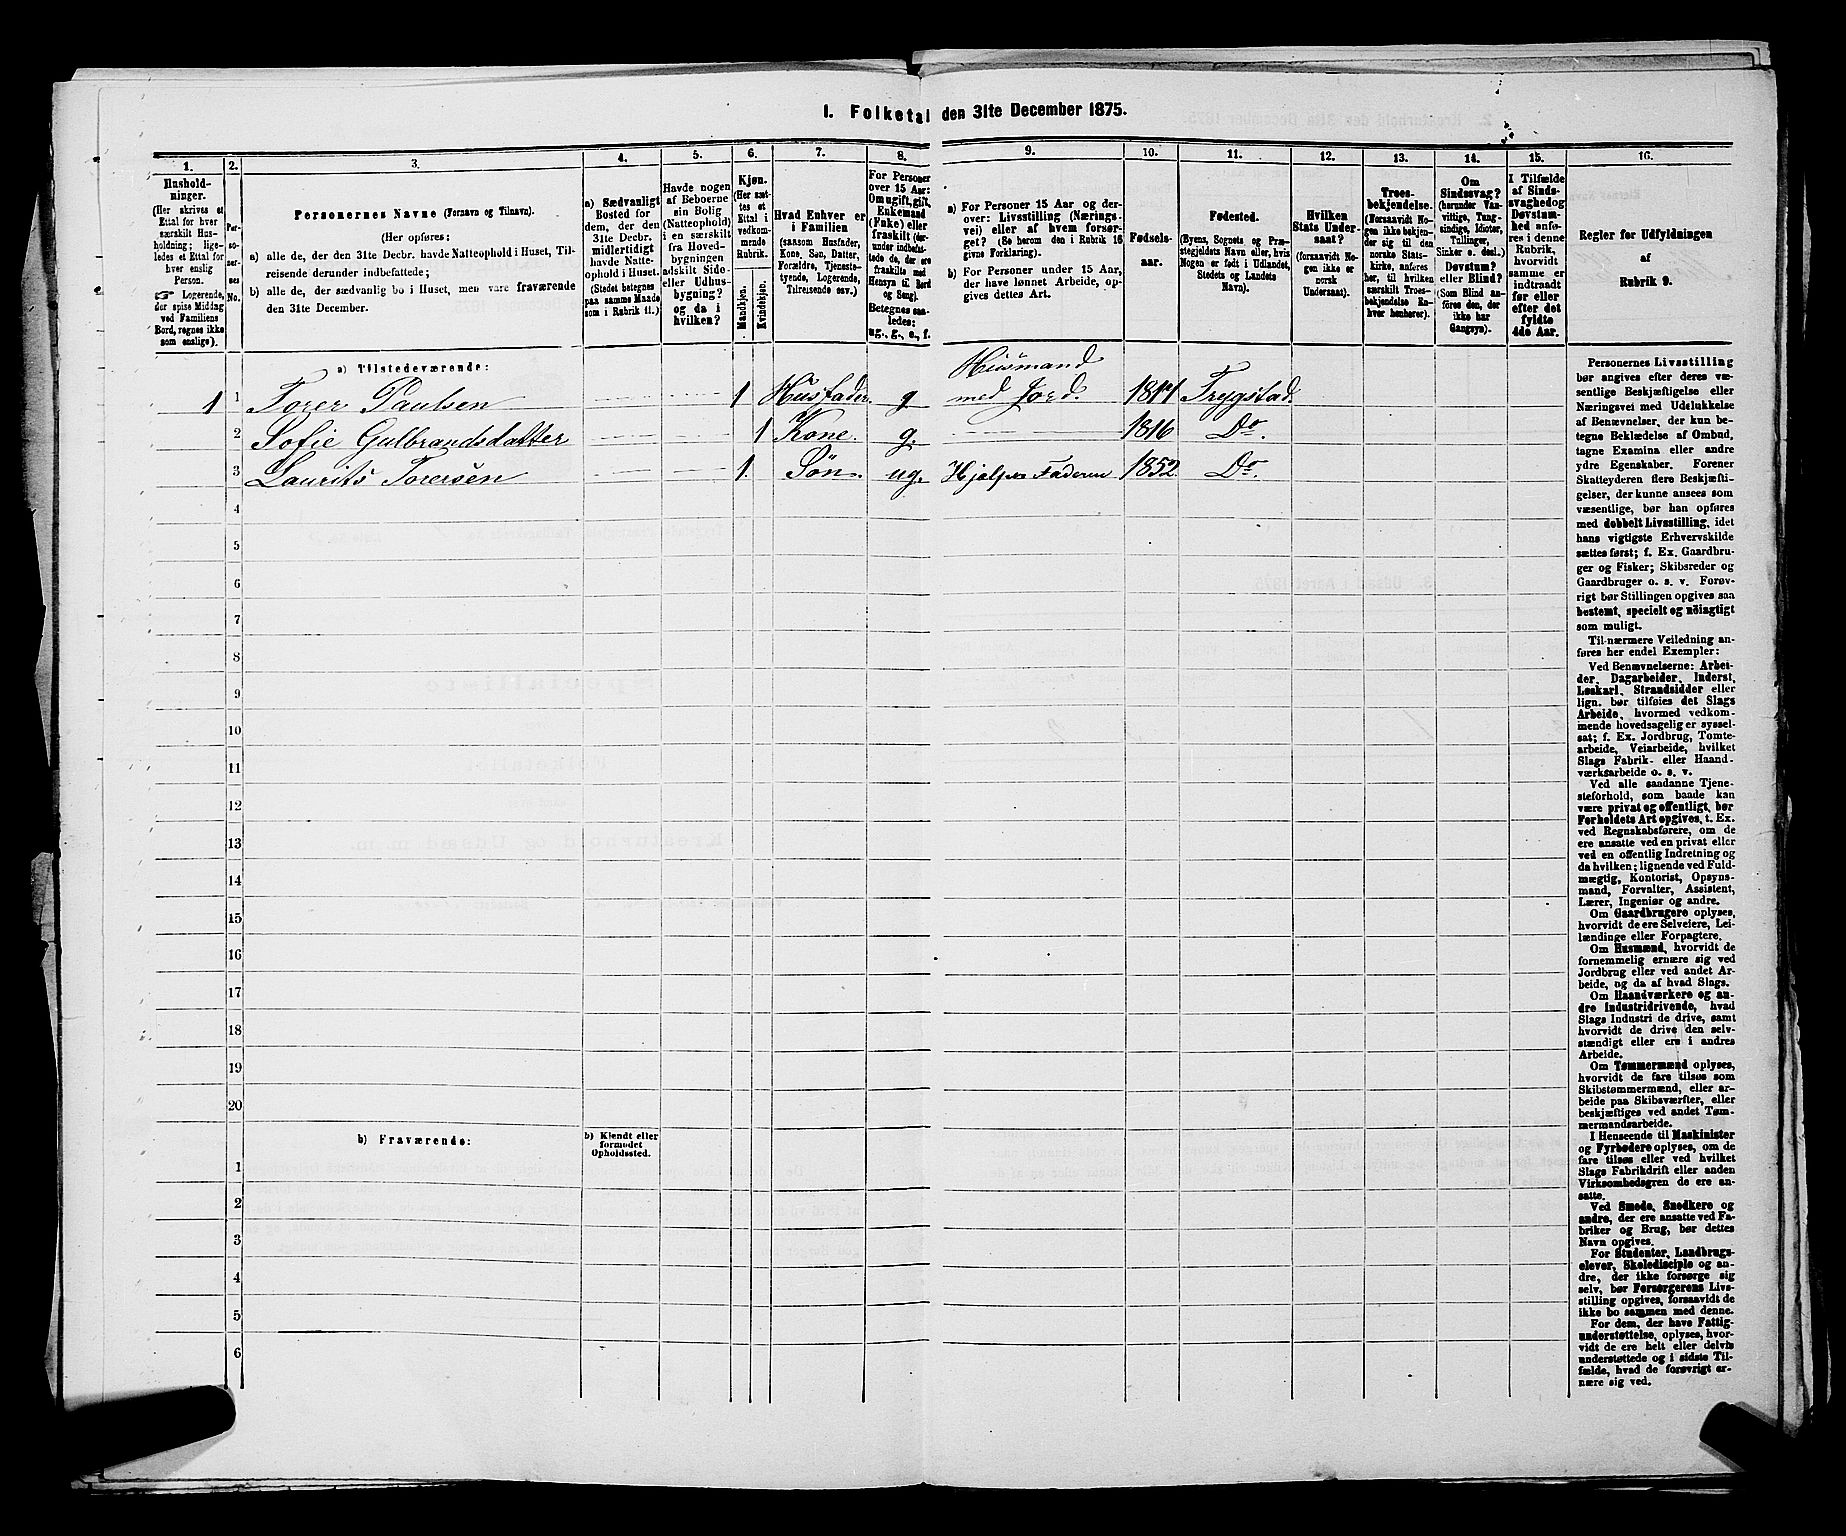 1. Folketal den 31te December 1875.
1. 2. 3. 4. 5. 6. 7. 8. 9. 10. 11. 12. 13. 14. 15. 16.
Hushold-
ninger.
(Her skrives et
Ettal for hver
særskilt Hus-
holdning; lige-
ledes et Ettal for
hver enslig
Person.
☞ Logerende,
der spise Middag
ved Familiens
Bord, regnes ikke
som enslige).
Per-
so-
ner-
nes
No.
Personernes Navne (Fornavn og Tilnavn).
(Her opføres:
a) alle de, der den 31te Decbr. havde Natteophold i Huset, Til-
reisende derunder indbefattede;
b) alle de, der sædvanlig bo i Huset, men vare fraværende
den 31te December.
a) Sædvanligt
Bosted for
dem, der den
31te Decbr.
midlertidigt
havde Natte-
ophold i Huset.
(Stedet betegnes
paa samme Maade
som i Rubrik 11.)
Havde nogen
af Beboerne
sin Bolig
(Natteophold)
i en særskilt
fra Hoved-
bygningen
adskilt Side-
eller Udhus-
bygning?
og da i
hvilken?
Kjøn.
(Her sæt-
tes et
Ettal i
vedkom-
mende
Rubrik.)
Mandkjøn.
Kvindekjøn.
Hvad Enhver er
i Familien
(saasom Husfader,
Kone, Søn, Datter,
Forældre, Tjeneste-
tyende, Logerende,
Tilreisende osv.)
For Personer
over 15 Aar:
Om ugift, gift,
Enkemand
(Enke) eller
fraskilt (der-
under indbefat-
tede de, der ere
fraskilte med
Hensyn til Bord
og Seng).
Betegnes saa-
ledes:
ug., g., e., f.
a) For Personer 15 Aar og der-
over: Livsstilling (Nærings-
vei) eller af hvem forsør-
get? (Se herom den i Rubrik 16
givne Forklaring).
b) For Personer under 15 Aar,
der have lønnet Arbeide, op-
gives dettes Art.
Fødsels-
aar.
Fødested.
(Byens, Sognets og Præ-
stegjeldets Navn eller, hvis
Nogen er født i Udlandet,
Stedets og Landets
Navn).
Hvilken
Stats Under-
saat?
(forsaavidt No-
gen ikke er
norsk
Undersaat).
Troes-
bekjendelse.
(Forsaavidt No-
gen ikke bekjen-
der sig til den
norske Stats-
kirke, anføres
her, til hvilken
særskilt Troes-
bekjendelse En-
hver henhører).
Om
Sindssvag?
(herunder Van-
vittige, Tung-
sindige, Idioter,
Tullinger,
Sinker o. desl.)
Døvstum?
eller Blind?
(Som Blind an-
føres den, der
ikke har
Gangsyn).
I Tilfælde
af Sinds-
svaghed og
Døvstum-
hed anfø-
res i denne
Rubrik,
hvorvidt
samme er
indtraadt
før eller
efter det
fyldte
4de Aar.
Regler for Udfyldningen
af
Rubrik 9.
a) Tilstedeværende:
Husmand
1 1 Torer Paulsen 1 Husfader. g med Jord. 1811 Trygstad.
2 Sofie Gulbrandsdatter 1 Kone. g. 1816 Do.
3 Laurits Torersen 1. Søn. ug. Hjælper Faderen 1852 Do.
4
5
6
7
8
9
10
11
12
13
14
15
16
17
18
19
20
b) Fraværende:
b) Kjendt eller
formodet
Opholdssted.
1
2
3
4
5
6
Personernes Livsstilling
bør angives efter deres væ-
sentlige Beskjæftigelse eller
Næringsvei med Udelukkelse
af Benævnelser, der kun be-
tegne Beklædelse af Ombud,
tagne Examina eller andre
ydre Egenskaber. Forener
Skatteyderen flere Beskjæfti-
gelser, der kunne ansees som
væsentlige, bør han opføres
med dobbelt Livsstilling, idet
hans vigtigste Erhvervskilde
sættes først; f. Ex. Gaardbru-
ger og Fisker; Skibsreder og
Gaardbruger o. s. v. Forøv-
rigt bør Stillingen opgives saa
bestemt, specielt og nøiagtigt
som muligt.
Til nærmere Veiledning an-
føres her endel Exempler:
Ved Benævnelserne: Arbei-
der, Dagarbeider, Inderst,
Løskarl, Strandsidder eller
lign. bør tilføies det Slags
Arbeide, hvormed vedkom-
mende hovedsagelig er syssel-
sat; f. Ex. Jordbrug, Tomte-
arbeide, Veiarbeide, hvilket
Slags Fabrik- eller Haand-
værksarbeide o. s. v.
Ved alle saadanne Tjene-
steforhold, som baade kan
være privat og offentligt, bør
Forholdets Art opgives, t. Ex.
ved Regnskabsførere, om de
ere ansatte ved en privat eller
ved en offentlig Indretning og
da hvilken; lignende ved Fuld-
mægtig, Kontorist, Opsyns-
mand, Forvalter, Assistent,
Lærer, Ingeniør og andre.
Om Gaardbrugere oplyses,
hvorvidt de ere Selveiere, Lei-
lændinge eller Forpagtere.
Om Husmænd, hvorvidt de
fornemmelig ernære sig ved
Jordbrug eller ved andet Ar-
beide, og da af hvad Slags.
Om Haandværkere og an-
dre Industridrivende, hvad
Slags Industri de drive, samt
hvorvidt de drive den selv-
stændigt eller ere i andres
Arbeide.
Om Tømmermænd oplyses,
hvorvidt de fare tilsøs som
Skibstømmermænd, eller ar-
beide paa Skibsværfter, eller
beskjæftiges ved andet Tøm-
mermandsarbeide.
I Henseende til Maskinister
og Fyrbødere oplyses, om de
fare tilsøs eller ved hvilket
Slags Fabrikdrift eller anden
Virksomhedsgren de ere an-
satte.
Ved Smede, Snedkere og
andre, der ere ansatte ved Fa-
briker og Brug, bør dettes
Navn opgives.
For Studenter, Landbrugs-
elever, Skoledisciple og an-
dre, der ikke forsørge sig
selv, bør Forsørgerens Livs-
stilling opgives, forsaavidt de
ikke bo sammen med denne.
For dem, der have Fattig-
understøttelse, oplyses, hvor-
vidt de ere helt eller delvis
understøttede og i sidste Til-
fælde, hvad de forøvrigt er-
nære sig ved.